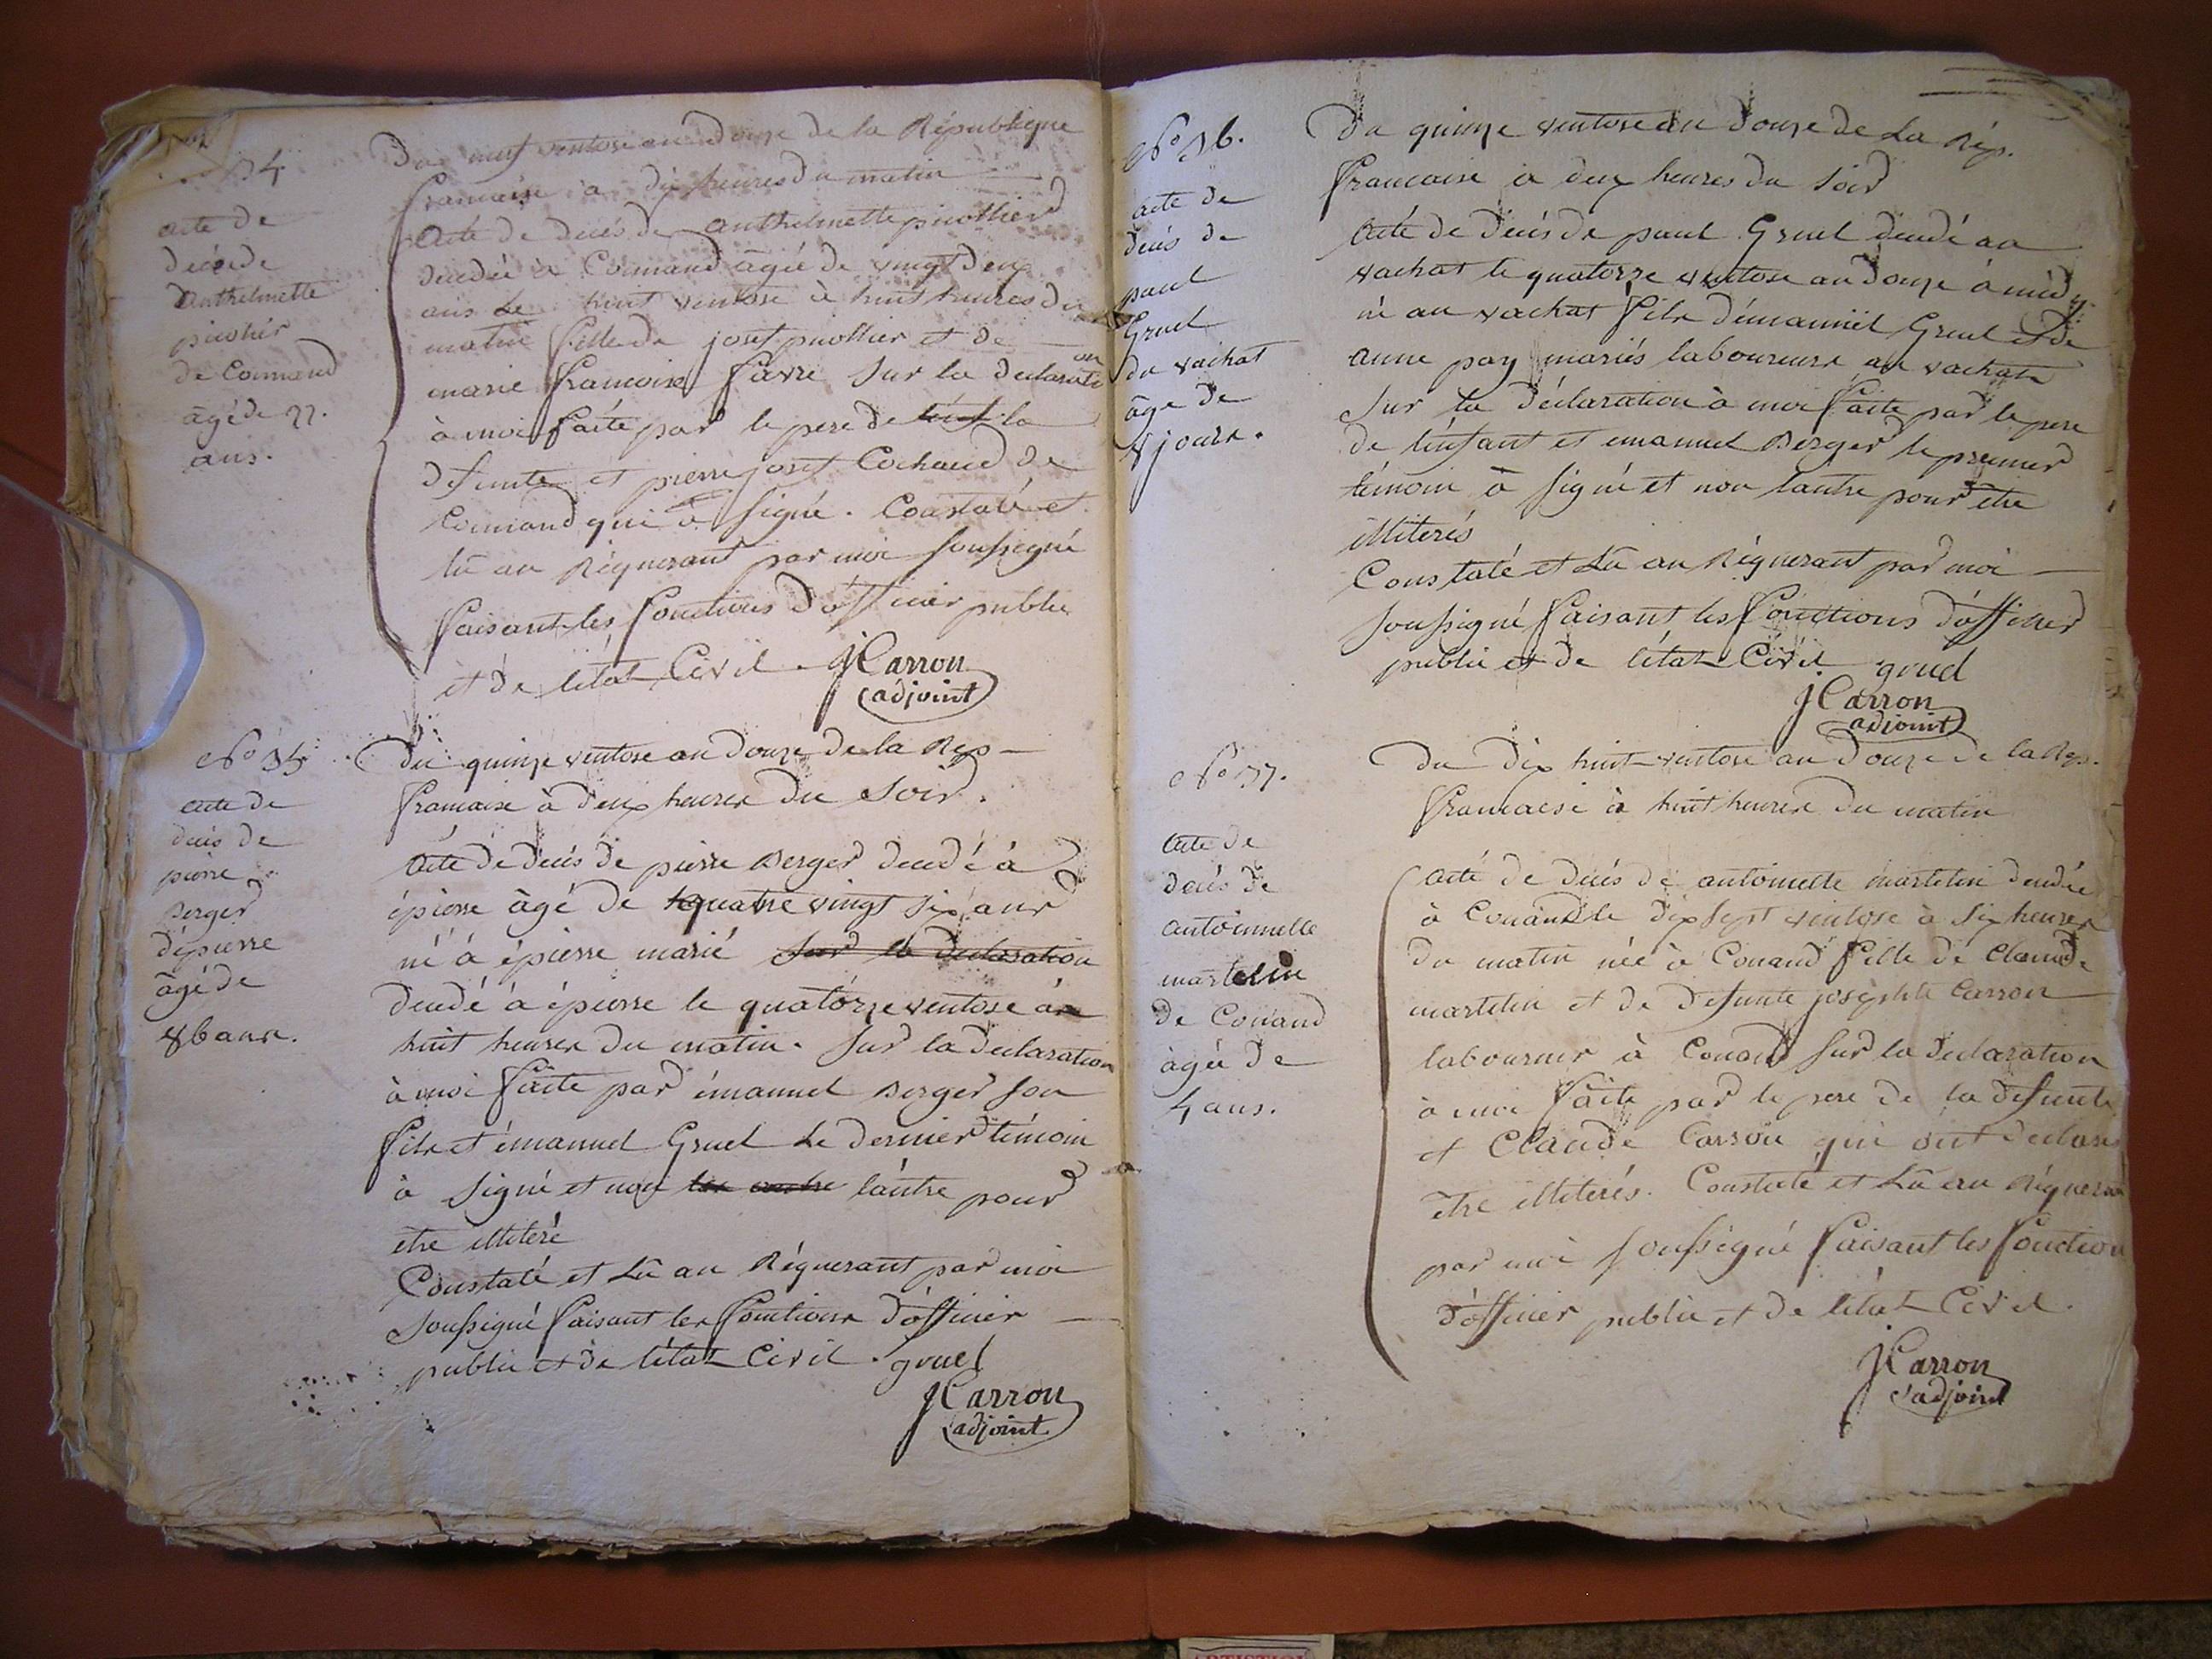 34
acte de
décé de
Anthelmette
picolier
de Connand
âgé de 22.
ans.
Du neuf ventose an Douze de la République
francaise à dix heures du matin
Acte de décés de anthelmette picollier
décédée à Connand âgée de vingt deux
ans Le huit ventose à huit heures du
matin fille de josef picollier et de
marie francoise favre Sur la declaration
à moi faite par le pere de la
defunte et pierre josef Cochaud de
Connand qui à signé. Constaté et
lû au Réquerant par moi soussigné
faisant les fonctions d'officier public
et de l'état Civil. JCarron
adjoint
No 35
acte de
décés de
pierre
Berger
d'épierre
âgé de
86 ans.
Du quinze ventose an douze de la Rep
francaise à deux heures du Soir.
Acte de decés de pierre Berger decedé à
épierre âgé de quatre vingt six ans
né à épierre marié sur la declaration
decedé à épierre le quatorze ventose à
huit heures du matin. Sur la declaration
à moi faite par émanuel Berger son
fils et émanuel Gruel Le dernier témoin
à Signé et non les autre l'autre pour
etre illiteré
Constaté et Lû au Réquerant par moi
soussigné faisant les fonctions d'officier
public et de l'état Civil. gruel
JCarron
adjoint
No 36.
acte de
décés de
paul
Gruel
du vachat
âge de
8 jours.
Du quinze ventose an douze de La Rép.
francaise à deux heures du soir
Acte de décés de paul Gruel decedé au
vachat le quatorze ventose an douze à midy
né au vachat fils d'émanuël Gruel et de
anne pay mariés laboureurs au vachat
Sur la déclaration à moi faite par le pere
de l'enfant et emanuel Berger le premier
témoin à signé et non l'autre pour être
illiterés
Constaté et Lû au Réquerant par moi
soussigné faisant les fonctions d'officier
public et de l'état Civil gruel
JCarron
adjoint
No 37.
Acte de
decés de
antoinnette
martelin
de Conand
âgée de
4 ans.
Du dix huit ventose an Douze de la Rep.
francaise à huit heures du matin
Acté de décés de antoinette martelin decedée
à Conand le dix sept ventose à six heures
du matin née à Conand fille de claude
martelin et de defunte josephte Carron
laboureur à Conand sur la declaration
à moi faite par le pere de la defunte
et Claude Carron qui ont declaré
etre illiterés. Constaté et Lû au Réqueran
par moi soussigné faisant les fonction
d'officier public et de l'état Civil.
JCarron
adjoint